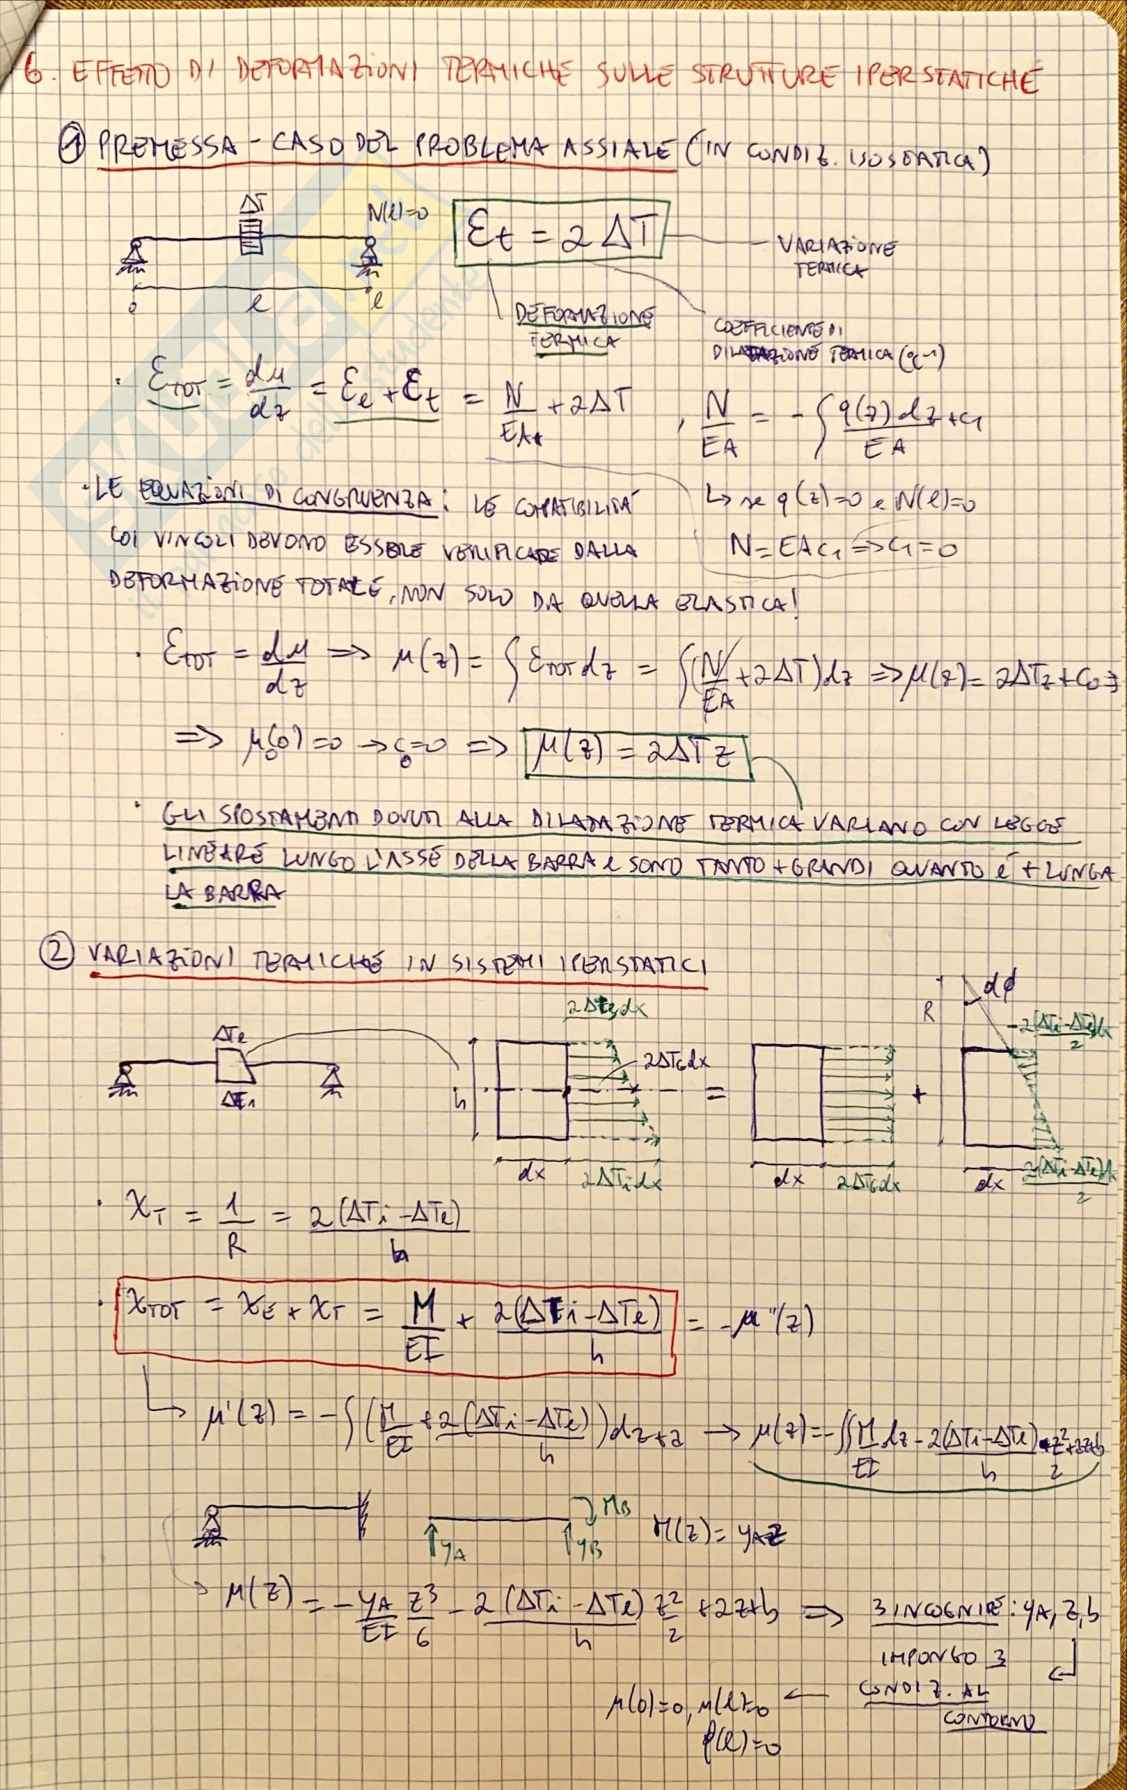 6. EFFETTO DI DEFORMAZIONI TERMICHE SULLE STRUTTURE IPERSTATICHE
① PREMESSA - CASO DEL PROBLEMA ASSIALE (IN CONDIZ. ISOSTATICA)
ΔT
N(l)=0
0 l l
Ɛt = α ΔT
VARIAZIONE TERMICA
DEFORMAZIONE TERMICA
COEFFICIENTE DI DILATAZIONE TERMICA (°C⁻¹)
· ƐTOT = dμ/dz = Ɛe + Ɛt = N/EA + αΔT , N/EA = -∫ q(z)dz/EA + c₁
↳ se q(z)=0 e N(l)=0
N = EA c₁ => c₁=0
· LE EQUAZIONI DI CONGRUENZA: LE COMPATIBILITÀ
COI VINCOLI DEVONO ESSERE VERIFICATE DALLA
DEFORMAZIONE TOTALE, NON SOLO DA QUELLA ELASTICA!
· ƐTOT = dμ/dz => μ(z) = ∫ ƐTOT dz = ∫(N/EA + αΔT)dz => μ(z) = αΔTz + C₀ =>
=> μ₀(0)=0 → c₀=0 => μ(z) = αΔTz
· GLI SPOSTAMENTI DOVUTI ALLA DILATAZIONE TERMICA VARIANO CON LEGGE
LINEARE LUNGO L'ASSE DELLA BARRA e SONO TANTO + GRANDI QUANTO È + LUNGA
LA BARRA
② VARIAZIONI TERMICHE IN SISTEMI IPERSTATICI
ΔTe
ΔTi
h
αΔTedx
αΔTGdx
dx αΔTidx
=
dx αΔTGdx
+
R
dφ
-α(ΔTi-ΔTe)dx/2
dx α(ΔTi-ΔTe)dx/2
· χT = 1/R = α(ΔTi-ΔTe)/h
· χTOT = χE + χT = M/EI + α(ΔTi-ΔTe)/h = -μ''(z)
↳ μ'(z) = -∫(M/EI + α(ΔTi-ΔTe)/h)dz+a → μ(z) = -∫∫M/EI dz - α(ΔTi-ΔTe)/h z²/2+az+b
YA YB MB M(z) = YAz
μ(z) = -YA/EI z³/6 - α(ΔTi-ΔTe)/h z²/2 + az+b => 3 INCOGNITE: YA, a, b
IMPONGO 3
CONDIZ. AL
CONTORNO
μ(0)=0, μ(l)=0
φ(l)=0